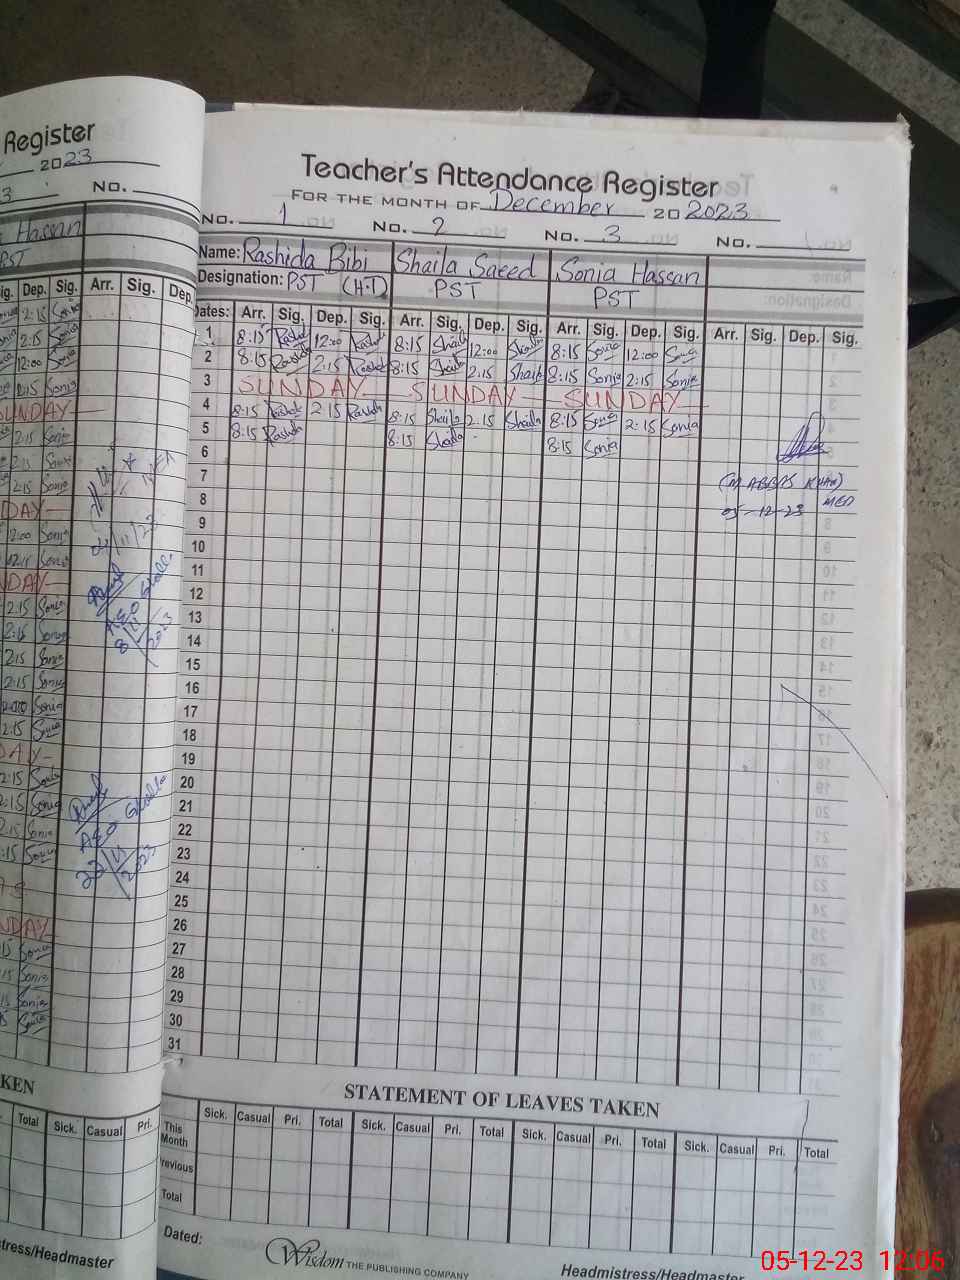 Register
2023
3
No.
Hassan
PST
Sig. Dep. Sig. Arr. Sig. Dep.
2:15 Sonia
2:15 Sonia
12:00 Sonia
2:15 Sonia
SUNDAY
2:15 Sonia
2:15 Sonia
2:15 Sonia
DAY
2:00 Sonia
12:15 Sonia
NDAY
2:15 Sonia
2:15 Sonia
2:15 Sonia
2:15 Sonia
Sonia
2:15 Sonia
DAY
2:15 Sonia
2:15 Sonia
2:15 Sonia
:15 Sonia
NDAY
15 Sonia
:15 Sonia
Sonia
Sonia
/11/23
AEO
8/11/2023
AEO
22/11/2023
KEN
Total Sick. Casual Pri.
stress/Headmaster
Teacher's Attendance Register
FOR THE MONTH OF December 20 2023
No. 1 No. 2 No. 3 No.
Name: Rashida Bibi Shaila Saeed Sonia Hassan
Designation: PST (H.T) PST PST
Dates: Arr. Sig. Dep. Sig. Arr. Sig. Dep. Sig. Arr. Sig. Dep. Sig. Arr. Sig. Dep. Sig.
1 8:15 Rashida 12:00 Rashida 8:15 Shaila 12:00 Shaila 8:15 Sonia 12:00 Sonia
2 8:15 Rashida 2:15 Rashida 8:15 Shaila 2:15 Shaila 8:15 Sonia 2:15 Sonia
3 SUNDAY SUNDAY SUNDAY
4 8:15 Rashida 2:15 Rashida 8:15 Shaila 2:15 Shaila 8:15 Sonia 2:15 Sonia
5 8:15 Rashida 8:15 Shaila 8:15 Sonia
6
7 (M ABBAS KHAN)
8 MEA
05-12-23
9
10
11
12
13
14
15
16
17
18
19
20
21
22
23
24
25
26
27
28
29
30
31
STATEMENT OF LEAVES TAKEN
Sick. Casual Pri. Total Sick. Casual Pri. Total Sick. Casual Pri. Total Sick. Casual Pri. Total
This Month
Previous
Total
Dated:
Wisdom THE PUBLISHING COMPANY
Headmistress/Headmaster
05-12-23 12:06